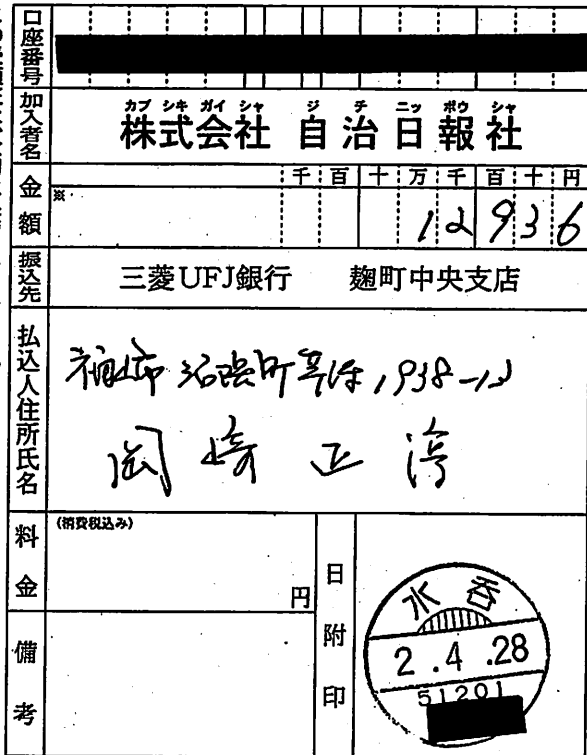 口座番号
加入者名
カブ シキ ガイ シャ ジ チ ニッ ポウ シャ
株式会社 自治日報社
金額
千 百 十 万 千 百 十 円
※
12936
振込先
三菱UFJ銀行 麹町中央支店
払込人住所氏名
1938-12
岡崎正淳
料金
(消費税込み)
円
備考
日附印
水呑
2.4.28
51201